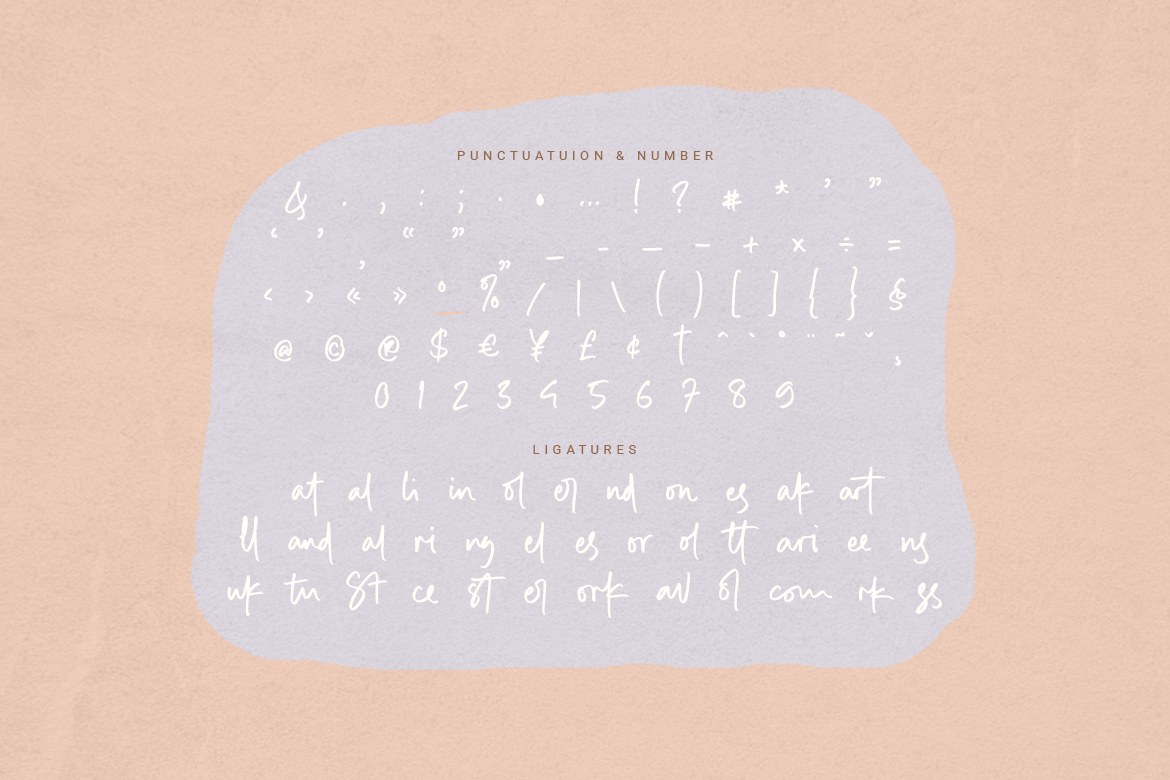 PUNCTUATUION & NUMBER
& . , : ; · • … ! ? # * ’ ”
‘ ’ “ ” _ - — – + × ÷ =
‚ „
‹ › « » ° % / | \ ( ) [ ] { } §
@ © ® $ € ¥ £ ¢ † ^ ` ° ¨ ~ ˘ ¸
0 1 2 3 4 5 6 7 8 9
LIGATURES
at al li in of er nd on es ak art
ll and al ri ng el es or ol tt ari ee ns
uk tu ST ce st er ork av of com rk ss